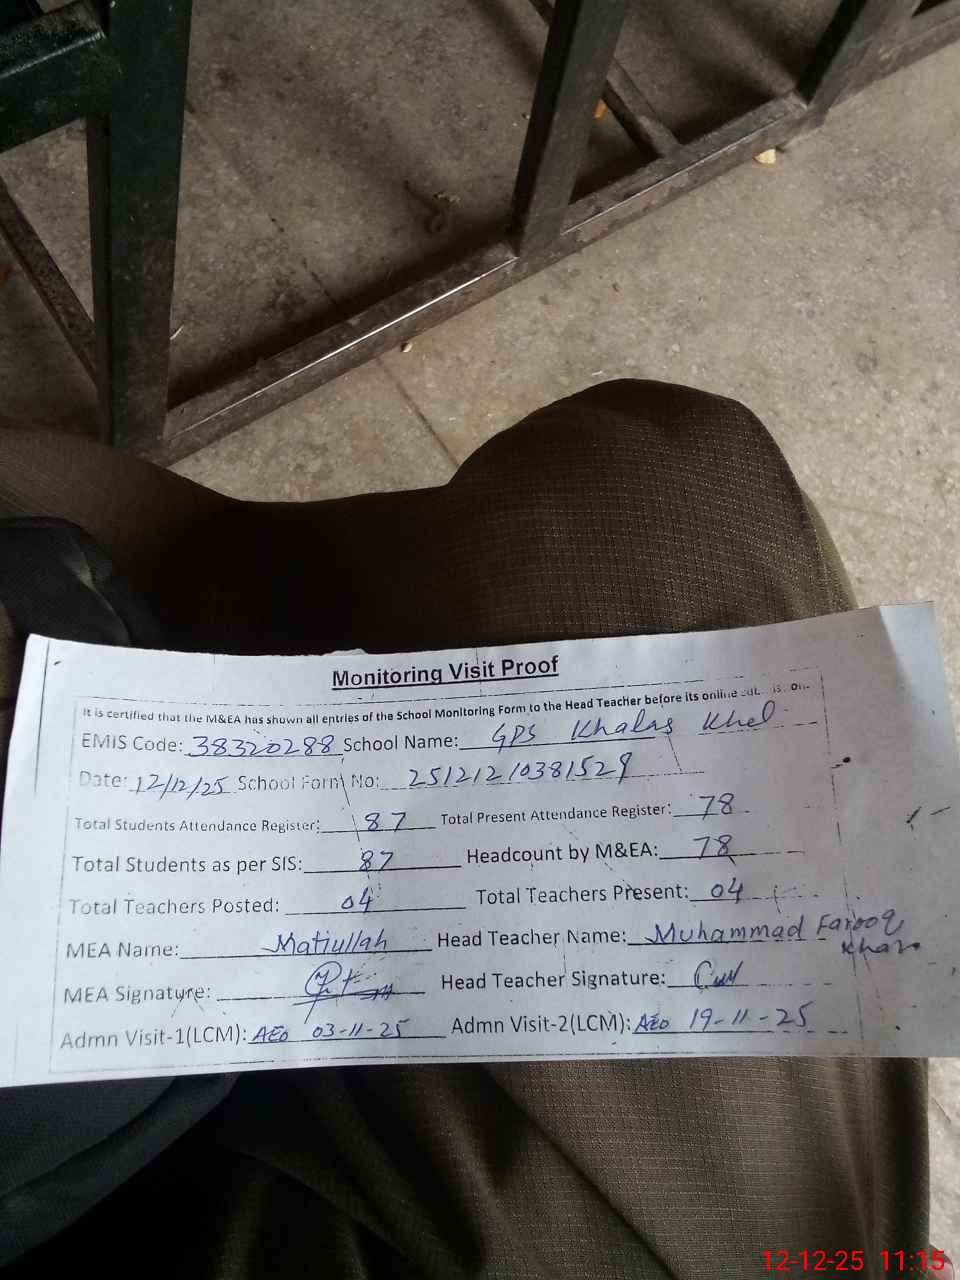 Monitoring Visit Proof
It is certified that the M&EA has shown all entries of the School Monitoring Form to the Head Teacher before its online
EMIS Code: 38320288 School Name: GPS Khalas Khel
Date: 12/12/25 School Form No: 25121210381529
Total Students Attendance Register: 87 Total Present Attendance Register: 78
Total Students as per SIS: 87 Headcount by M&EA: 78
Total Teachers Posted: 04 Total Teachers Present: 04
MEA Name: Matiullah Head Teacher Name: Muhammad Farooq Khan
MEA Signature: Head Teacher Signature:
Admn Visit-1(LCM): AEO 03-11-25 Admn Visit-2(LCM): AEO 19-11-25
12-12-25 11:15